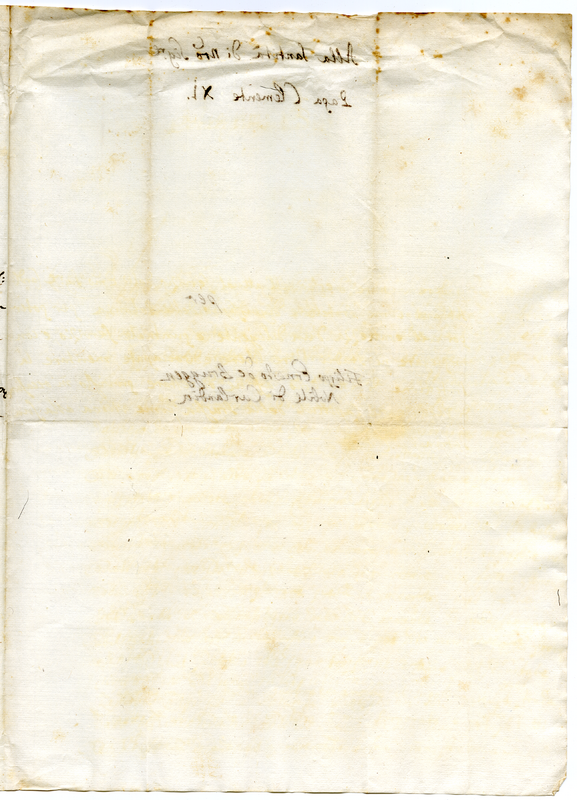 Alla Santità di Nro Sigre
Papa Clemente XI.
per
Filippo Ernesto de Bruggen
Nobile di Curlandia